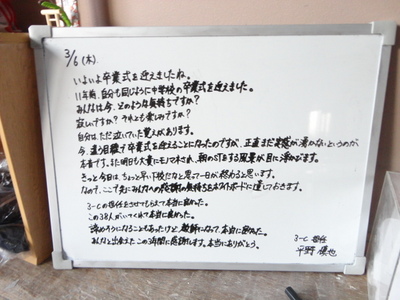 3/6(木).
いよいよ卒業式を迎えましたね。
11年前、自分も同じように中学校の卒業式を迎えました。
みんなは今、どのような気持ちですか?
寂しいですか? それとも楽しみですか?
自分は、ただ泣いていた覚えがあります。
今、違う目線で卒業式を迎えることになったのですが、正直まだ実感が湧かないというのが
本音です。また明日も大貴にモノマネされ、朝のSTをする風景が目に浮かびます。
きっと今日は、ちょっと早い下校だなと思って一日が終わると思います。
なので、ここで先にみんなへの感謝の気持ちをホワイトボードに遺しておきます。
3-Cの担任をさせてもらえて本当に良かった。
この38人がいてくれて本当に良かった。
諦めそうになることもあったけど、教師になって、本当に良かった。
みんなと出会えたこの3年間に感謝します。本当にありがとう。
3-C 担任
平野 優也